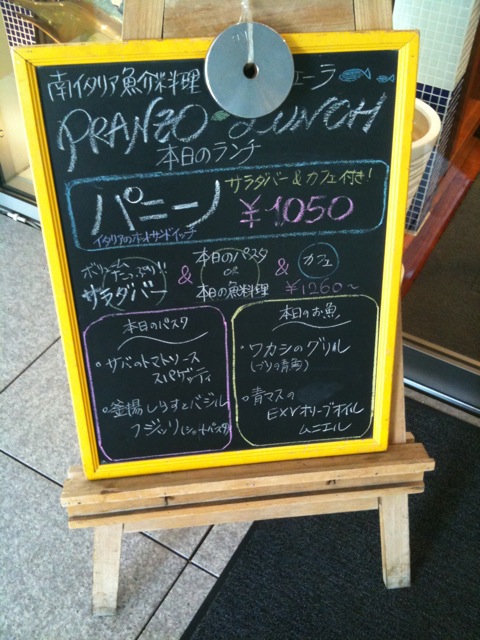 南イタリア魚介料理 ェーラ
PRANZO LUNCH
本日のランチ
パニーノ
サラダバー&カフェ付き!
¥1050
イタリアのホットサンドイッチ
ボリュームたっぷり!!
サラダバー
&
本日のパスタ
or
本日の魚料理
&
カフェ
¥1260~
本日のパスタ
・サバのトマトソース
スパゲッティ
・釜揚しらすとバジル
フジッリ(ショートパスタ)
本日のお魚
・ワカシのグリル
(ブリの青魚)
・青マスの
EXVオリーブオイル
ムニエル